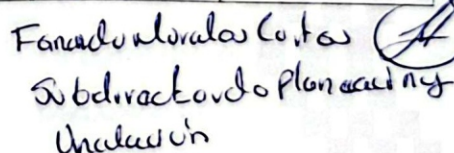 Fernando Morales Cortes
Subdirector de Planeación y